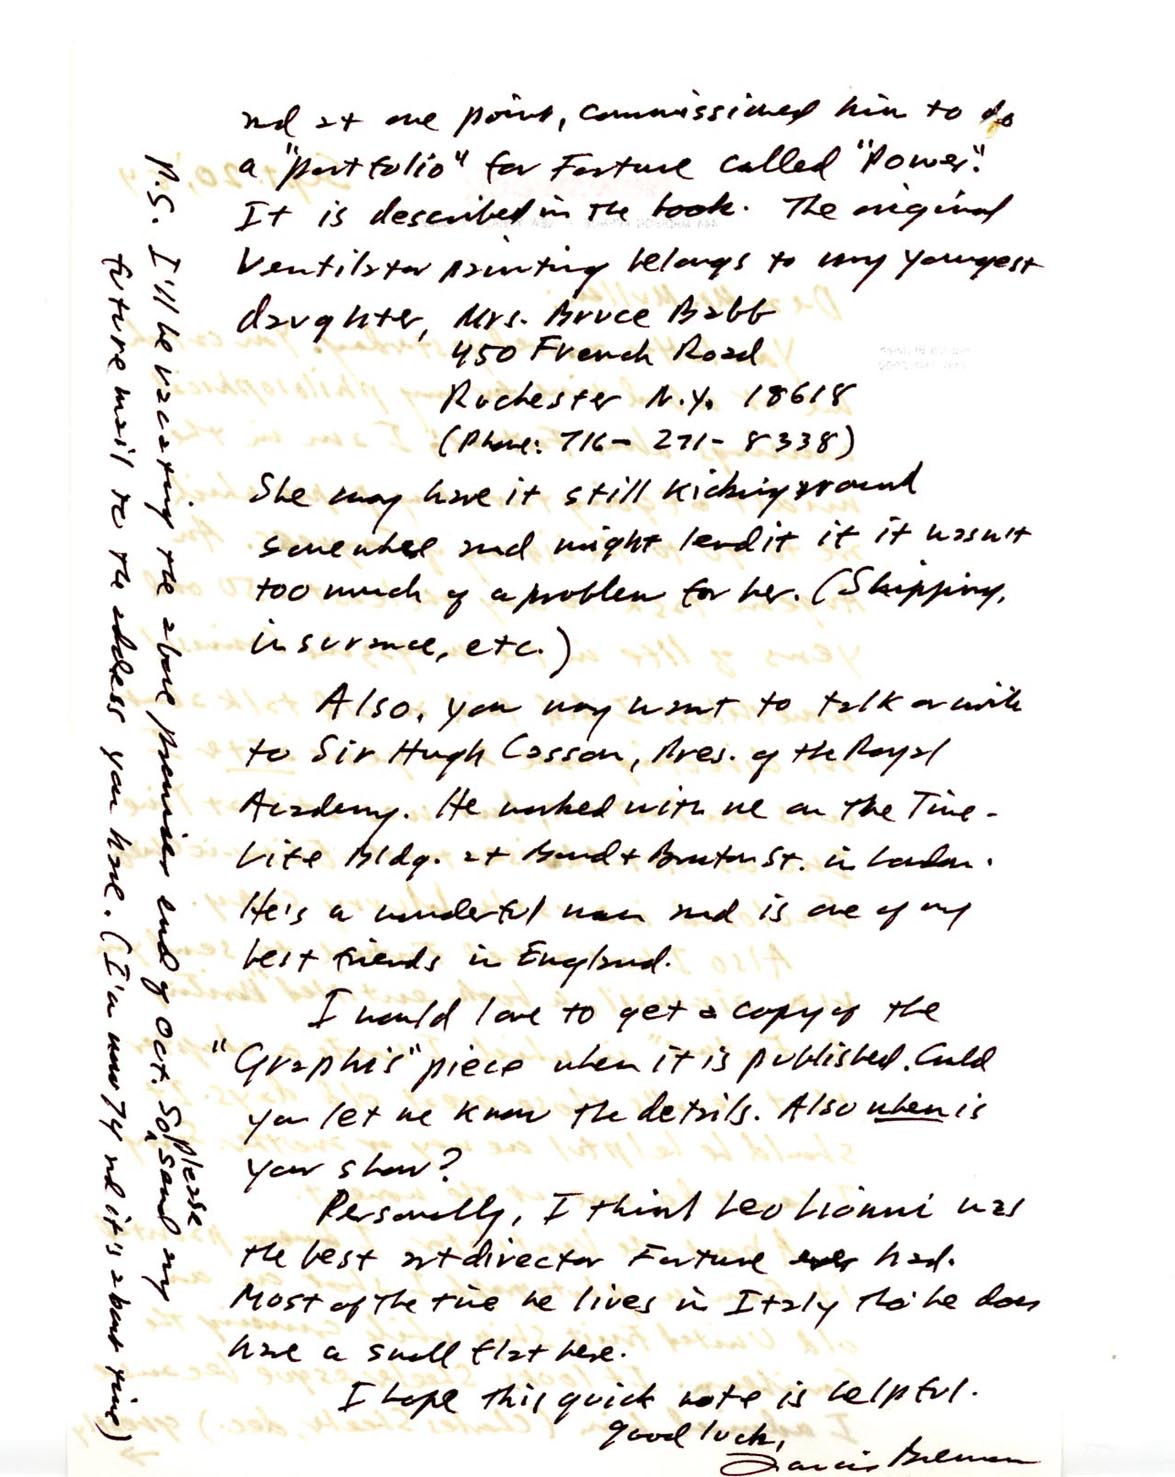 and at one point, commissioned him to do
a "portfolio" for Fortune called "Power".
It is described in the book. The original
Ventilator painting belongs to my youngest
daughter, Mrs. Bruce Babb
450 French Road
Rochester N.Y. 18618
(Phone: 716- 271- 8338)
She may have it still kicking around
somewhee and might lend it if it wasn't
too much of a problem for her. (Shipping,
insurance, etc.)
Also, you may want to talk or write
to Sir Hugh Casson, Pres. of the Royal
Academy. He worked with me on the Time-
Life Bldg. at Bond + Bruton St. in London.
He's a wonderful man and is one of my
best friends in England.
I would love to get a copy of the
"Graphis" piece when it is published. Could
you let me know the details. Also when is
your show?
Personally, I think Leo Lionni was
the best art director Fortune ever had.
Most of the time he lives in Italy tho' he does
have a small flat here.
I hope this quick note is helpful.
Good luck,
P.S. I'll be vacating the above premises end of Oct. So please send my
future mail to the address you have. (I'm now 74 and it's about time)